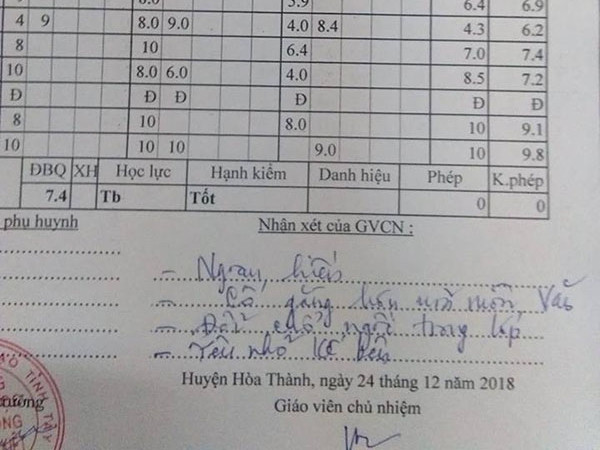 5.9 6.4 6.9
4 9 8.0 9.0 4.0 8.4 4.3 6.2
8 10 6.4 7.0 7.4
10 8.0 6.0 4.0 8.5 7.2
Đ Đ Đ Đ Đ Đ
8 10 8.0 10 9.1
10 10 10 9.0 10 9.8
ĐBQ XH Học lực Hạnh kiểm Danh hiệu Phép K.phép
7.4 Tb Tốt 0 0
phụ huynh Nhận xét của GVCN :
- Ngoan, hiền
- Cố gắng hơn nữa môn Văn
- Đổi chỗ ngồi trong lớp
- Yêu nhỏ kế bên
Huyện Hòa Thành, ngày 24 tháng 12 năm 2018
Giáo viên chủ nhiệm